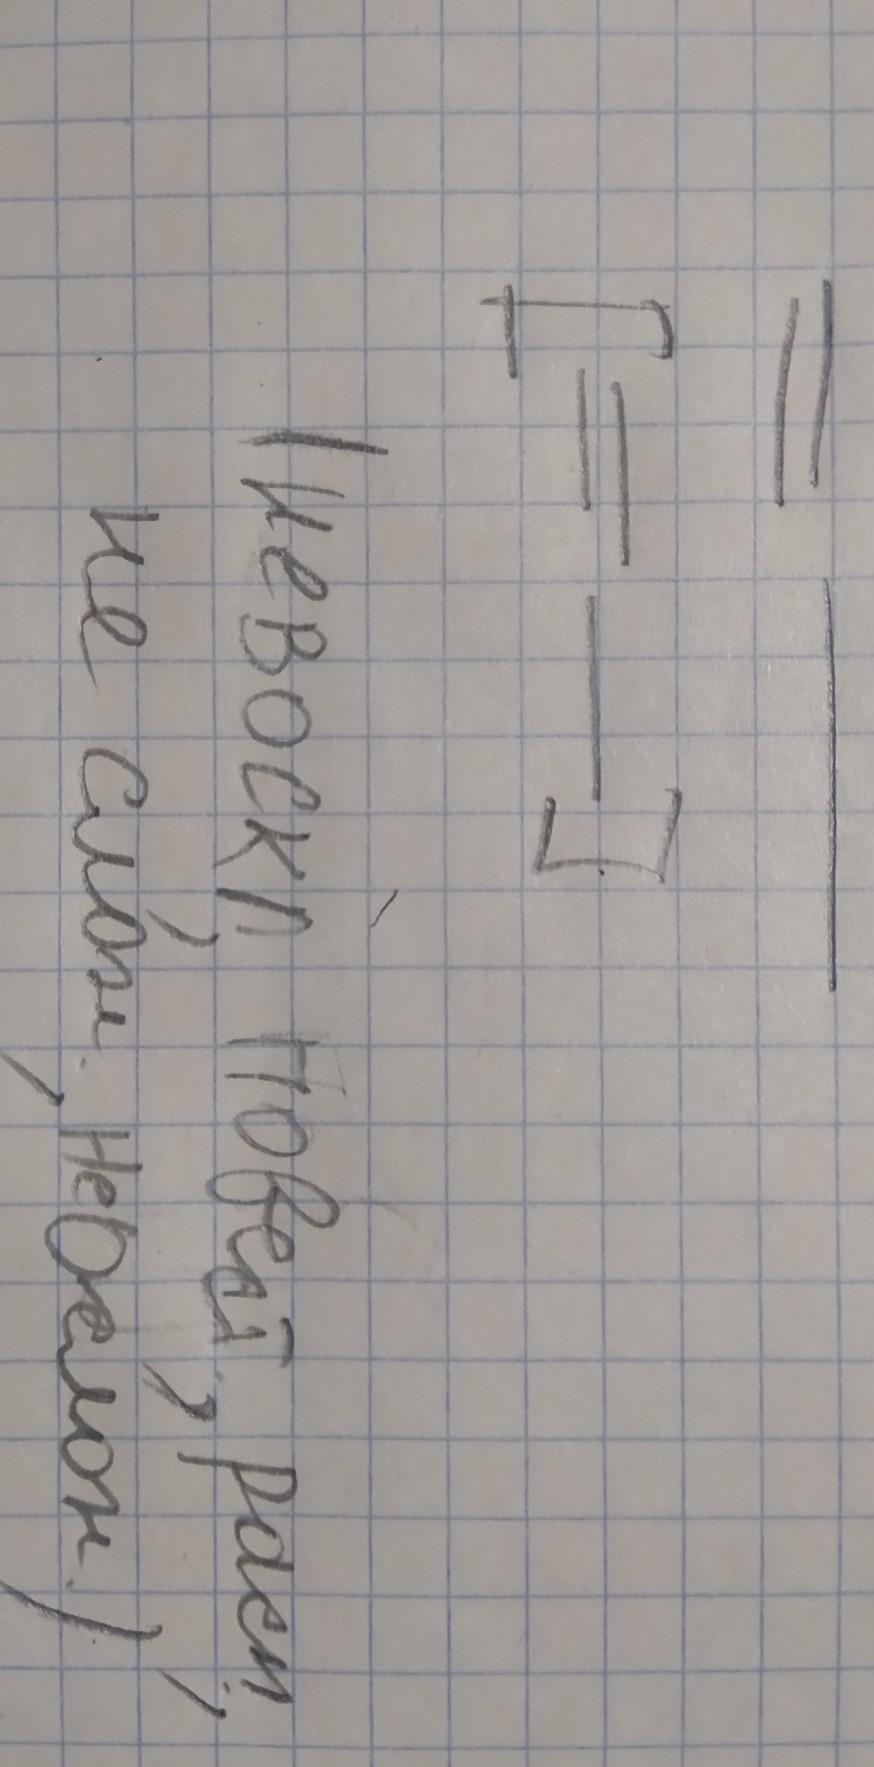 [= –]
(невоскл. повест., расп.,
не слож., неослож.)